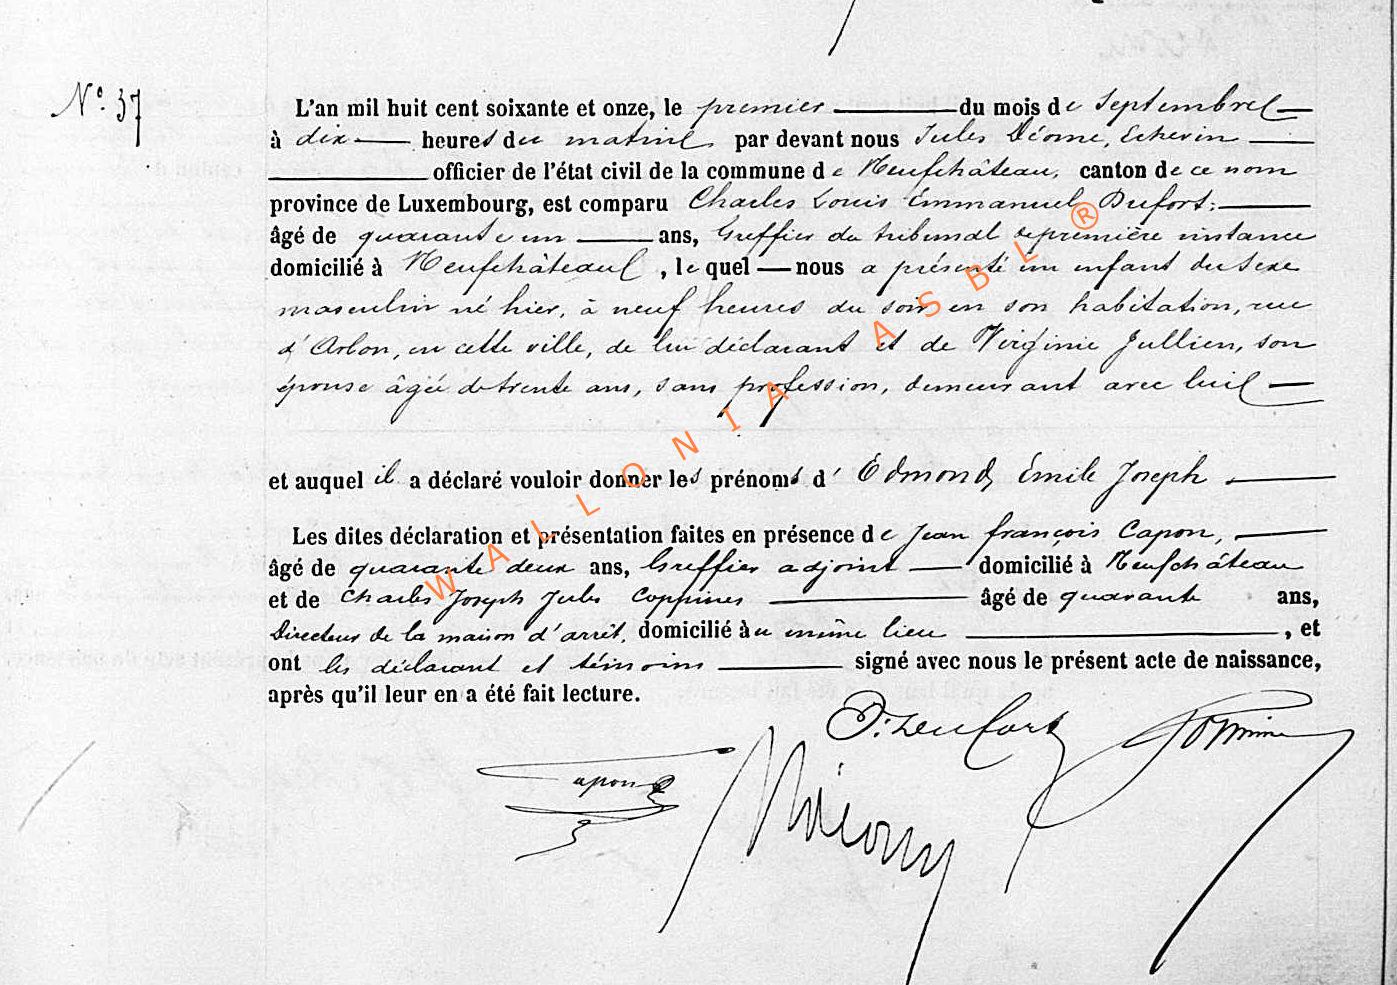 N° 37
L'an mil huit cent soixante et onze, le premier du mois de Septembre
à dix heures du matin par devant nous Jules Déome, Echevin
officier de l'état civil de la commune de Neufchâteau, canton de ce nom
province de Luxembourg, est comparu Charles Louis Emmanuel Dufort,
âgé de quarante un ans, Greffier du tribunal de première instance
domicilié à Neufchâteau, lequel nous a présenté un enfant du sexe
masculin né hier, à neuf heures du soir en son habitation, rue
d'Arlon, en cette ville, de lui déclarant et de Virginie Jullien, son
épouse âgée de trente ans, sans profession, demeurant avec lui
et auquel il a déclaré vouloir donner les prénoms d'Edmond, Emile Joseph
Les dites déclaration et présentation faites en présence de Jean françois Capon,
âgé de quarante deux ans, Greffier adjoint domicilié à Neufchâteau
et de Charles Joseph Jules Coppines âgé de quarante ans,
Directeur de la maison d'arrêt, domicilié au même lieu, et
ont les déclarant et témoins signé avec nous le présent acte de naissance,
après qu'il leur en a été fait lecture.
Capon
WALLONIA ASBL ®